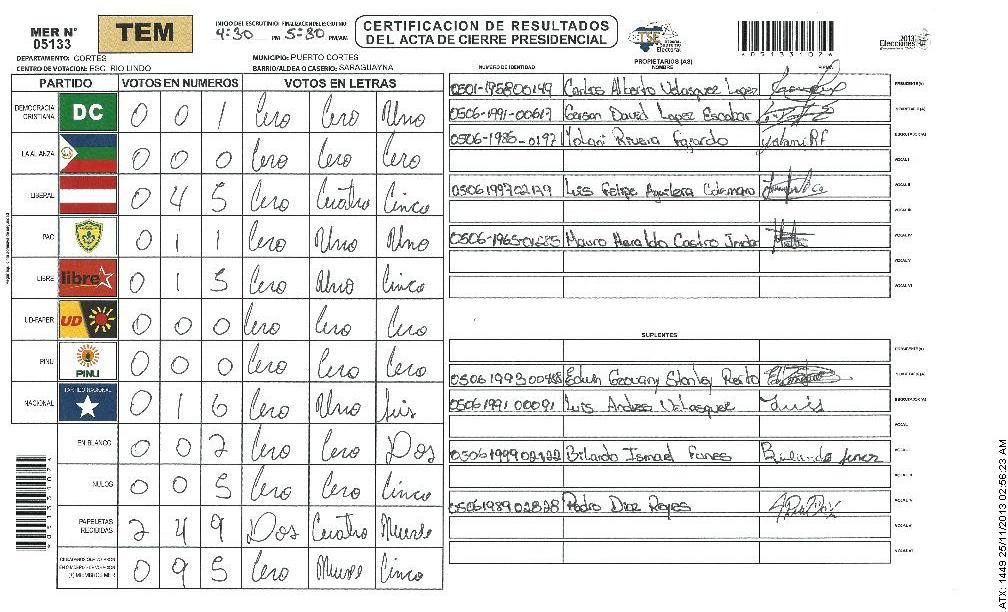 MER N° 05133
TEM
INICIO DEL ESCRUTINIO: 4:30 PM
FINALIZACION DEL ESCRUTINIO: 5:30 PM/AM
CERTIFICACION DE RESULTADOS
DEL ACTA DE CIERRE PRESIDENCIAL
TSE
Elecciones 2013
DEPARTAMENTO: CORTES
MUNICIPIO: PUERTO CORTES
CENTRO DE VOTACION: ESC. RIO LINDO
BARRIO/ALDEA O CASERIO: SARAGUAYNA
PARTIDO VOTOS EN NUMEROS VOTOS EN LETRAS
DEMOCRACIA CRISTIANA DC 0 0 1 Cero Cero Uno
LA ALIANZA 0 0 0 Cero Cero Cero
LIBERAL 0 4 5 Cero Cuatro Cinco
PAC 0 1 1 Cero Uno Uno
LIBRE libre 0 1 5 Cero Uno Cinco
UD-FAPER UD 0 0 0 Cero Cero Cero
PINU PINU 0 0 0 Cero Cero Cero
NACIONAL PARTIDO NACIONAL 0 1 6 Cero Uno Seis
EN BLANCO 0 0 2 Cero Cero Dos
NULOS 0 0 5 Cero Cero Cinco
PAPELETAS RECIBIDAS 2 4 9 Dos Cuatro Nueve
0 9 5 Cero Nueve Cinco
PROPIETARIOS (AS)
NUMERO DE IDENTIDAD NOMBRE FIRMA
Carlos Alberto Velasquez Lopez PRESIDENTE(A)
0506-1991-00617 Gerson David Lopez Escobar
0506-1985-0197 Yolani Rivera Fajardo Yolani RF ESCRUTADOR(A)
VOCAL I
Luis Felipe VOCAL II
VOCAL III
Mauro Castro VOCAL IV
VOCAL V
VOCAL VI
SUPLENTES
PRESIDENTE(A)
Edwin Geovany Stanley
0506 1991 00091 Luis Andres Velasquez Luis ESCRUTADOR(A)
VOCAL I
0506 1999 02122 Ismael Funes
0506 1989 02828 Pedro Diaz Reyes
VOCAL V
VOCAL VI
ATX: 1449 25/11/2013 02:56:23 AM